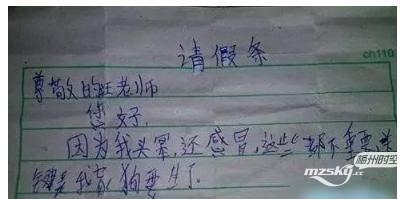 请假条
ch110
尊敬的旺老师
您好.
因为我头晕,还感冒,这些都不重要关
键是我家狗要生了.
梅州时空
mzsky.cc